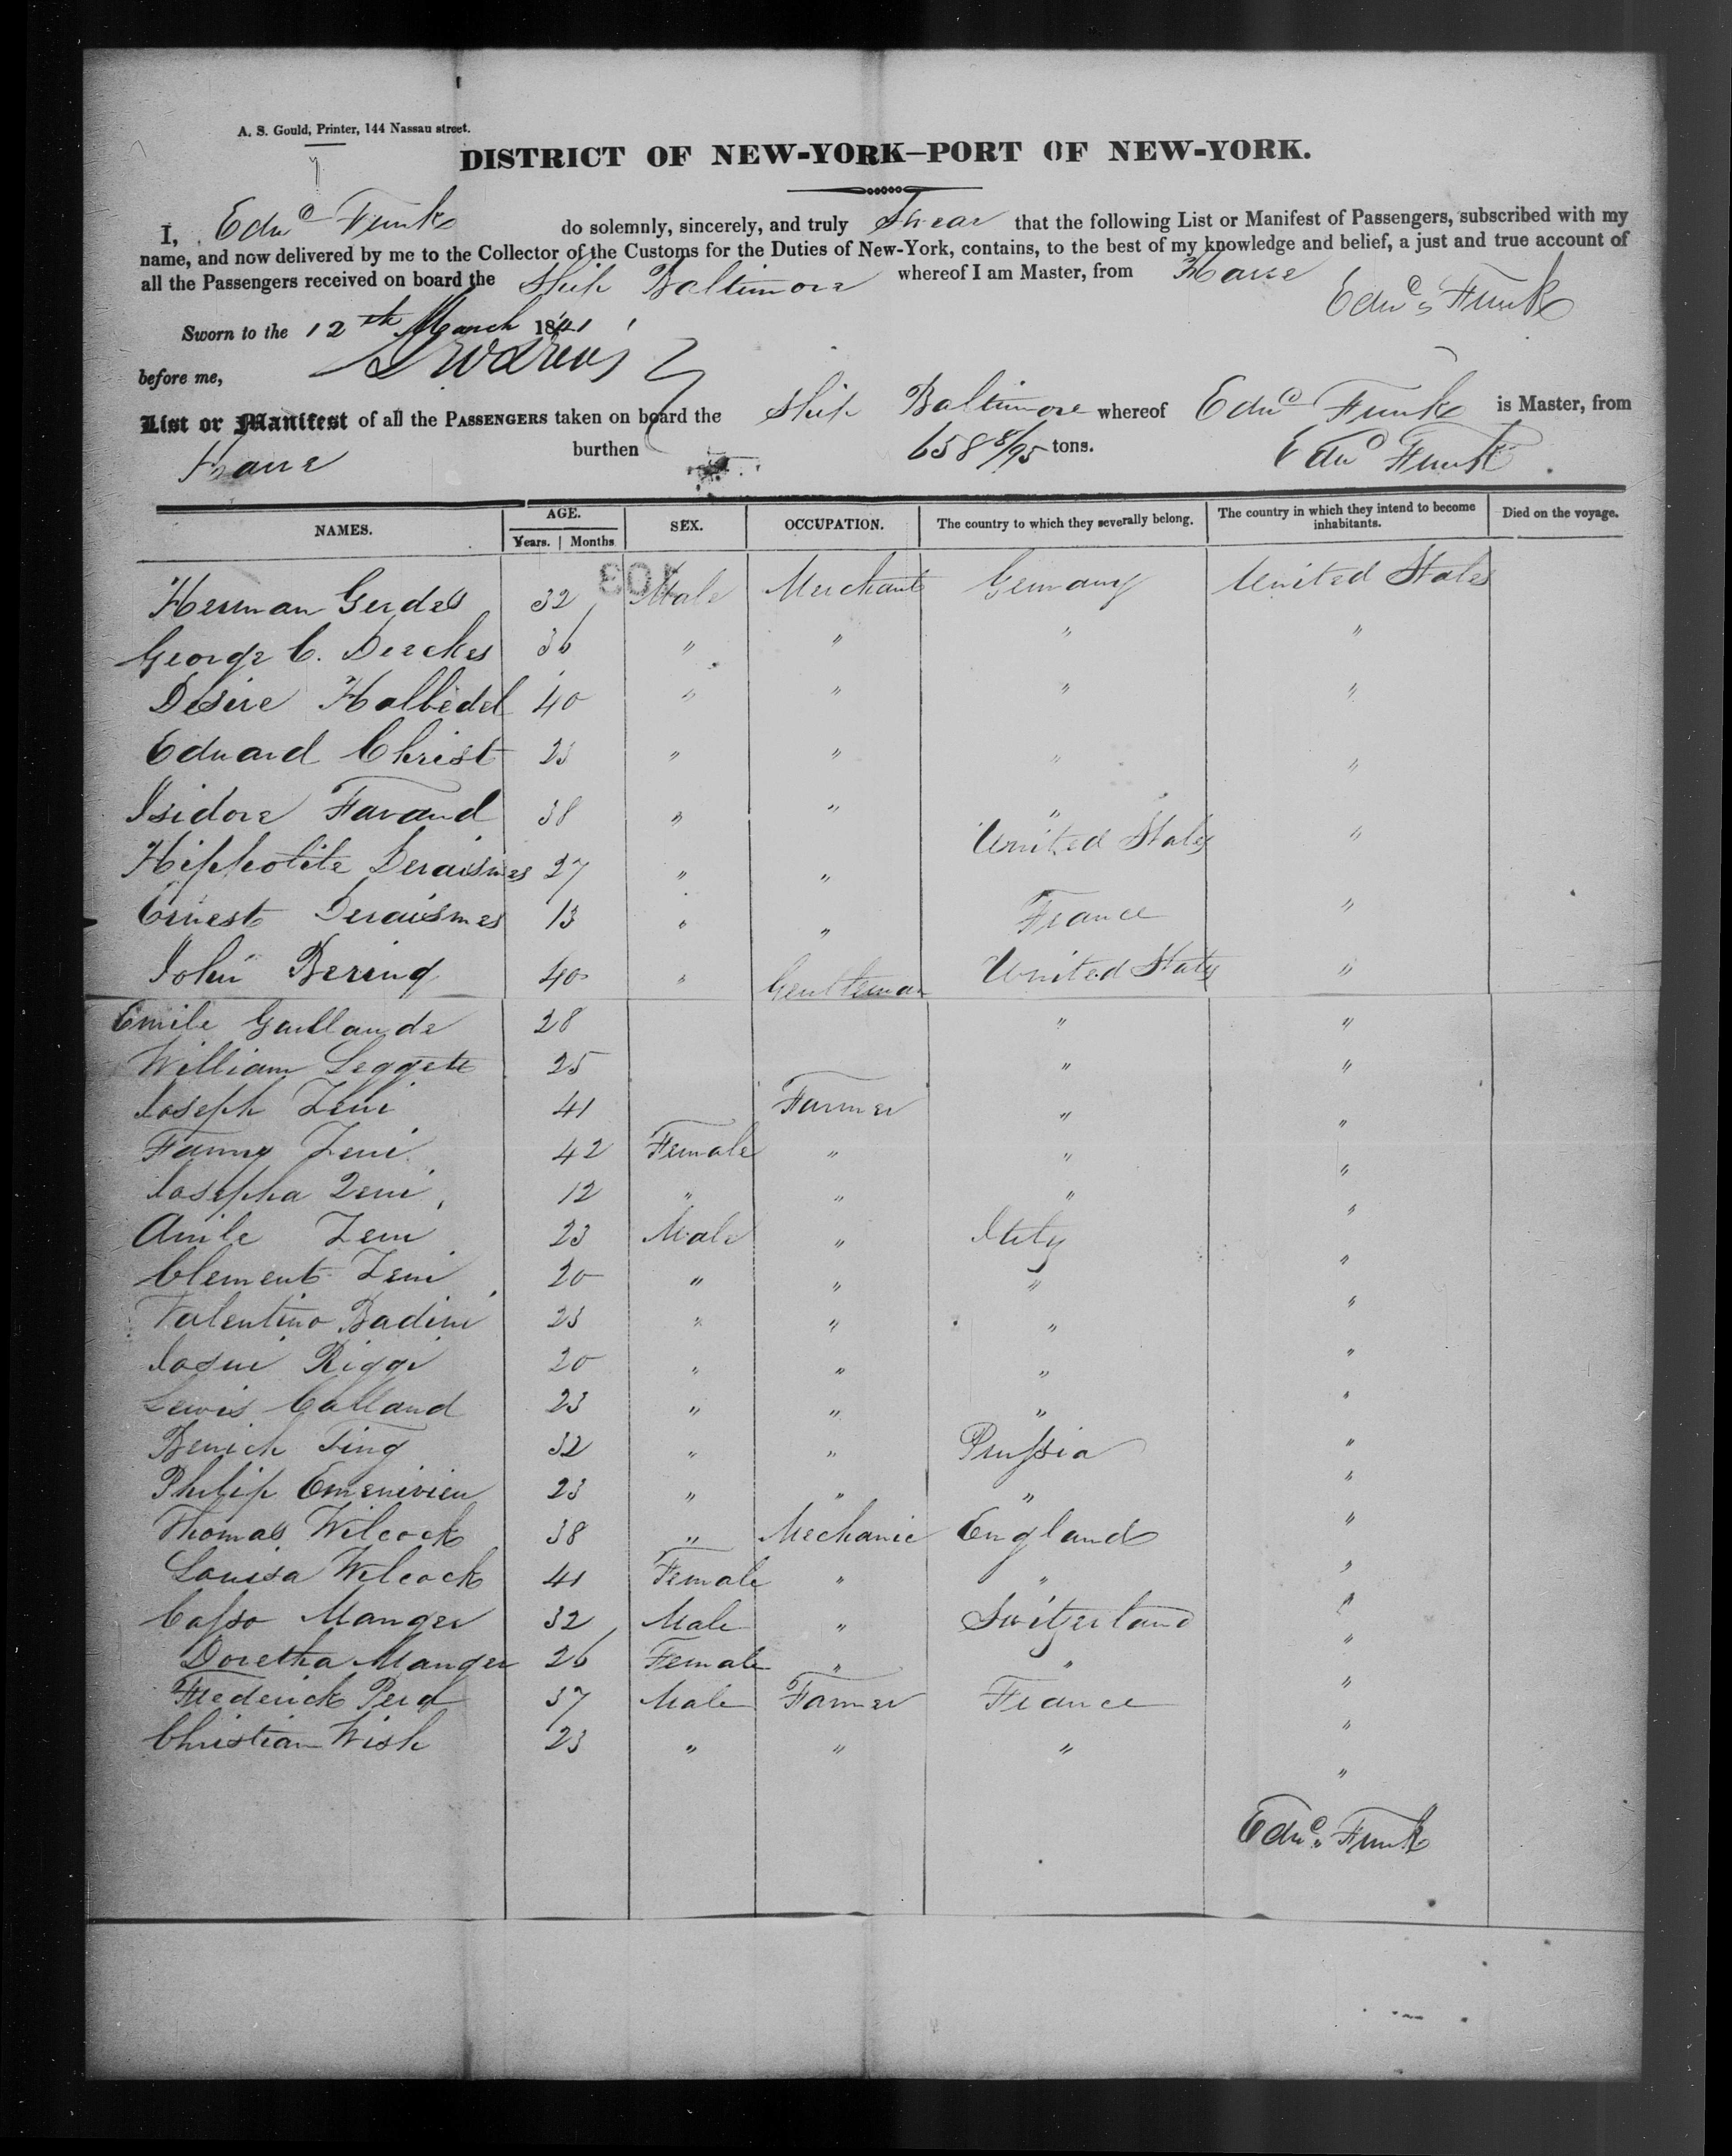 A. S. Gould, Printer, 144 Nassau street.
DISTRICT OF NEW-YORK–PORT OF NEW-YORK.
I, Edwd Funk do solemnly, sincerely, and truly Swear that the following List or Manifest of Passengers, subscribed with my
name, and now delivered by me to the Collector of the Customs for the Duties of New-York, contains, to the best of my knowledge and belief, a just and true account of
all the Passengers received on board the Ship Baltimore whereof I am Master, from Havre
Edwd Funk
Sworn to the 12th March 1841
before me,
List or Manifest of all the PASSENGERS taken on board the Ship Baltimore whereof Edwd Funk is Master, from
Havre burthen 658 8/95 tons. Edwd Funk
NAMES. AGE. Years. | Months SEX. OCCUPATION. The country to which they severally belong. The country in which they intend to become inhabitants. Died on the voyage.
Herman Gerdes 32 Male Merchant Germany United States
George C. Derckes 36 " " " "
Desire Halbedel 40 " " " "
Edward Christ 23 " " " "
Isidore Favand 38 " " " "
Hippolite Deraismes 27 " " United States "
Ernest Deraismes 13 " " France "
John Bering 40 " Gentleman United States "
Emile 28 " "
William Leggett 25 " "
Joseph Zeni 41 Farmer " "
Fanny Zeni 42 Female " " "
Josepha Zeni 12 " " " "
Zeni 23 Male " Italy "
Clement Zeni 20 " " " "
Valentino Badini 23 " " " "
Riggi 20 " " " "
Lewis Calland 23 " " " "
Benich Ting 32 " " Prussia "
Philip 23 " " " "
Thomas Wilcock 38 " Mechanic England "
Louisa Wilcock 41 Female " " "
Casso Manger 32 Male " Switzerland "
Doretha Manger 26 Female " " "
Frederick 37 Male Farmer France "
Christian Wish 23 " " " "
"
Edwd Funk